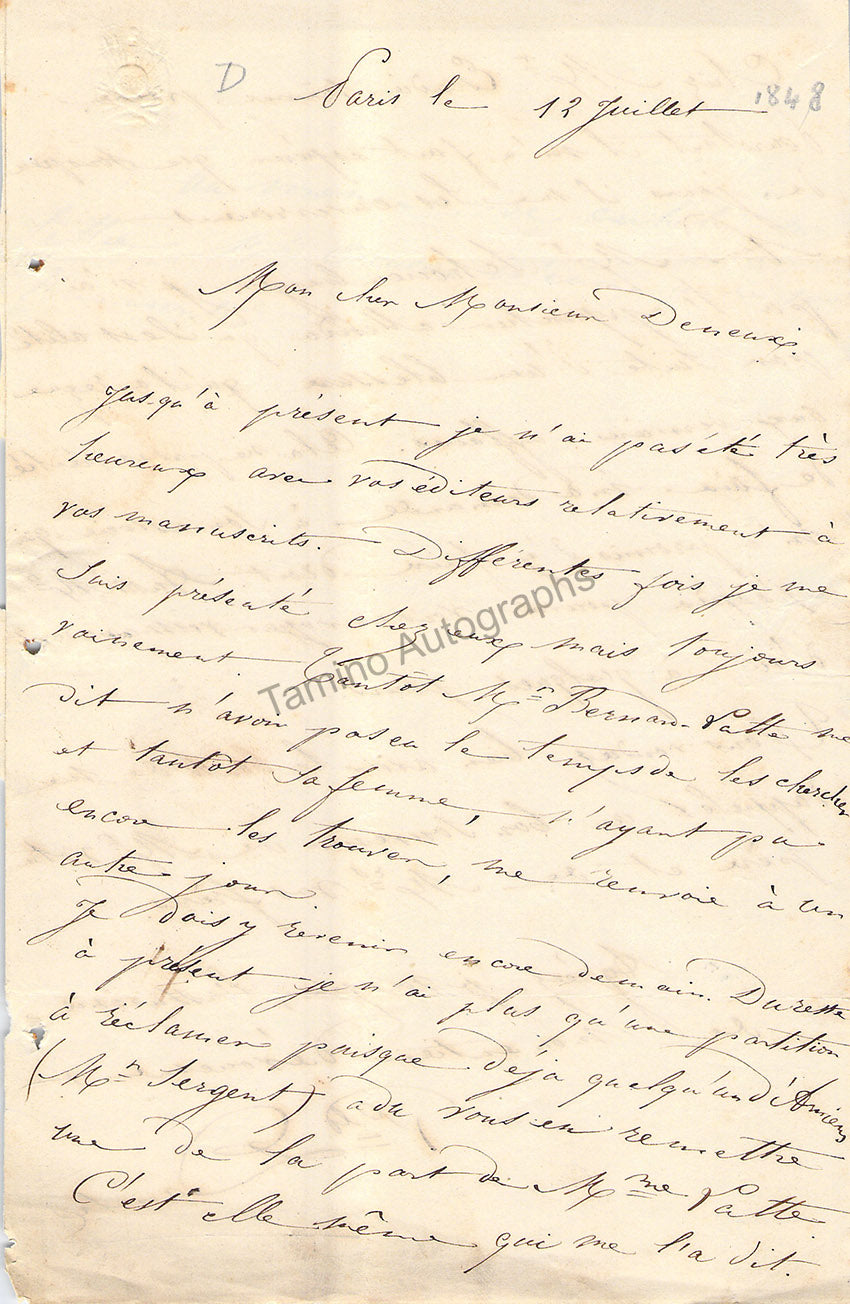 D
Paris le 12 Juillet 1848
Mon cher Monsieur Deneux.
Jusqu'à présent je n'ai pas été très
heureux avec vos éditeurs relativement à
vos manuscrits. Différentes fois je me
suis présenté chez eux mais toujours
vainement. Tantot Mr Bernard-Latte me
dit n'avoir pas eu le temps de les chercher
et tantôt sa femme, n'ayant pu
encore les trouver, me renvoie à un
autre jour.
Je dois y revenir encore demain. Du reste
à présent je n'ai plus qu'une partition
à réclamer puisque déjà quelqu'un d'Amiens
(Mr Sergent) a du vous en remettre
une de la part de Mme Latte.
C'est elle même qui me l'a dit.
Tamino Autographs